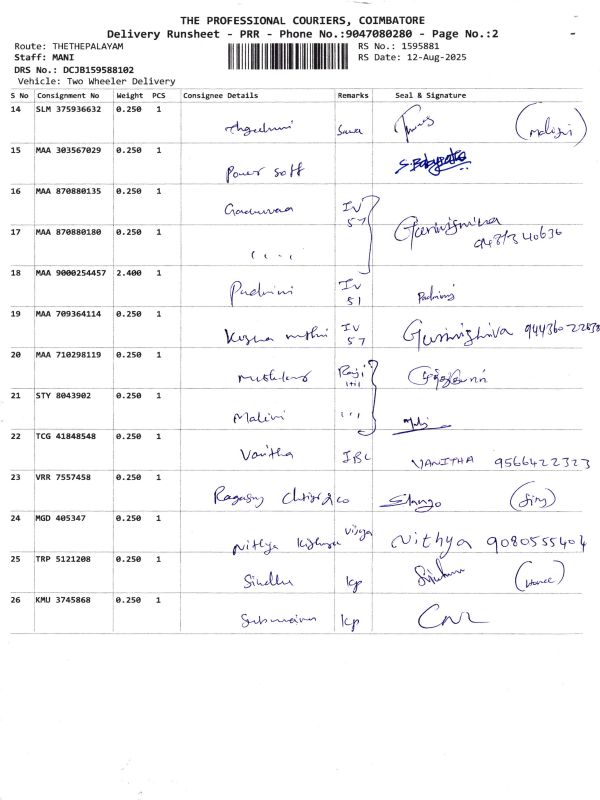 THE PROFESSIONAL COURIERS, COIMBATORE
Delivery Runsheet - PRR - Phone No.:9047080280 - Page No.:2
Route: THETHEPALAYAM RS No.: 1595881
Staff: MANI RS Date: 12-Aug-2025
DRS No.: DCJB159588102
Vehicle: Two Wheeler Delivery
S No Consignment No Weight PCS Consignee Details Remarks Seal & Signature
14 SLM 375936632 0.250 1
15 MAA 303567029 0.250 1 Power soft
16 MAA 870880135 0.250 1 IV 57
17 MAA 870880180 0.250 1 ,, ,,
18 MAA 9000254457 2.400 1 Padmini IV 51 Padmini
19 MAA 709364114 0.250 1 IV 57 94436022838
20 MAA 710298119 0.250 1
21 STY 8043902 0.250 1 Malini ,,,
22 TCG 41848548 0.250 1 Vanitha IBC VANITHA 9566422323
23 VRR 7557458 0.250 1
24 MGD 405347 0.250 1 Nithya Vijaya Nithya 9080555404
25 TRP 5121208 0.250 1 Sindhu Kp
26 KMU 3745868 0.250 1 Kp